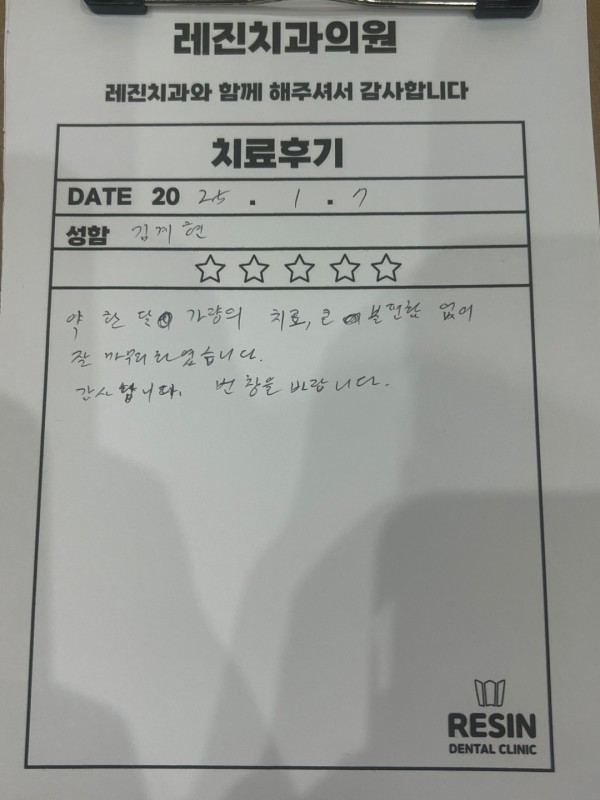 레진치과의원
레진치과와 함께 해주셔서 감사합니다
치료후기
DATE 20 25 . 1 . 7
성함 김계현
약 한 달 가량의 치료, 큰 불편함 없이
잘 마무리 하였습니다.
감사합니다. 번창을 바랍니다.
RESIN
DENTAL CLINIC